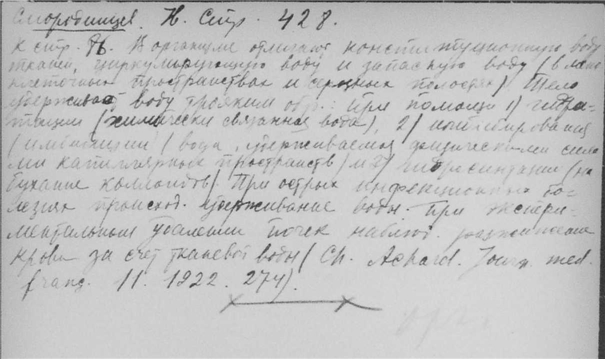 Смородинцев. Н. Стр. 428.
К стр. 86. В организме отличают конституционную воду
тканей, циркулирующую воду и запасную воду (в меж
клеточных пространствах и серозных полостях) Тело
удерживает воду трояким обр.: при помощи 1) гидра-
тации (химически связанная вода), 2)
имбибиции (вода, удерживаемая физическими сила
ми капиллярных пространств) и 3) (на
бухание коллоидов) При острых инфекционных бо-
лезнях происход. удерживание воды. При экспери-
ментальном удалении почек наблюд. разжижение
крови за счет тканевой воды (Ch. Achard. Journ med.
franç. 11. 1922. 274).